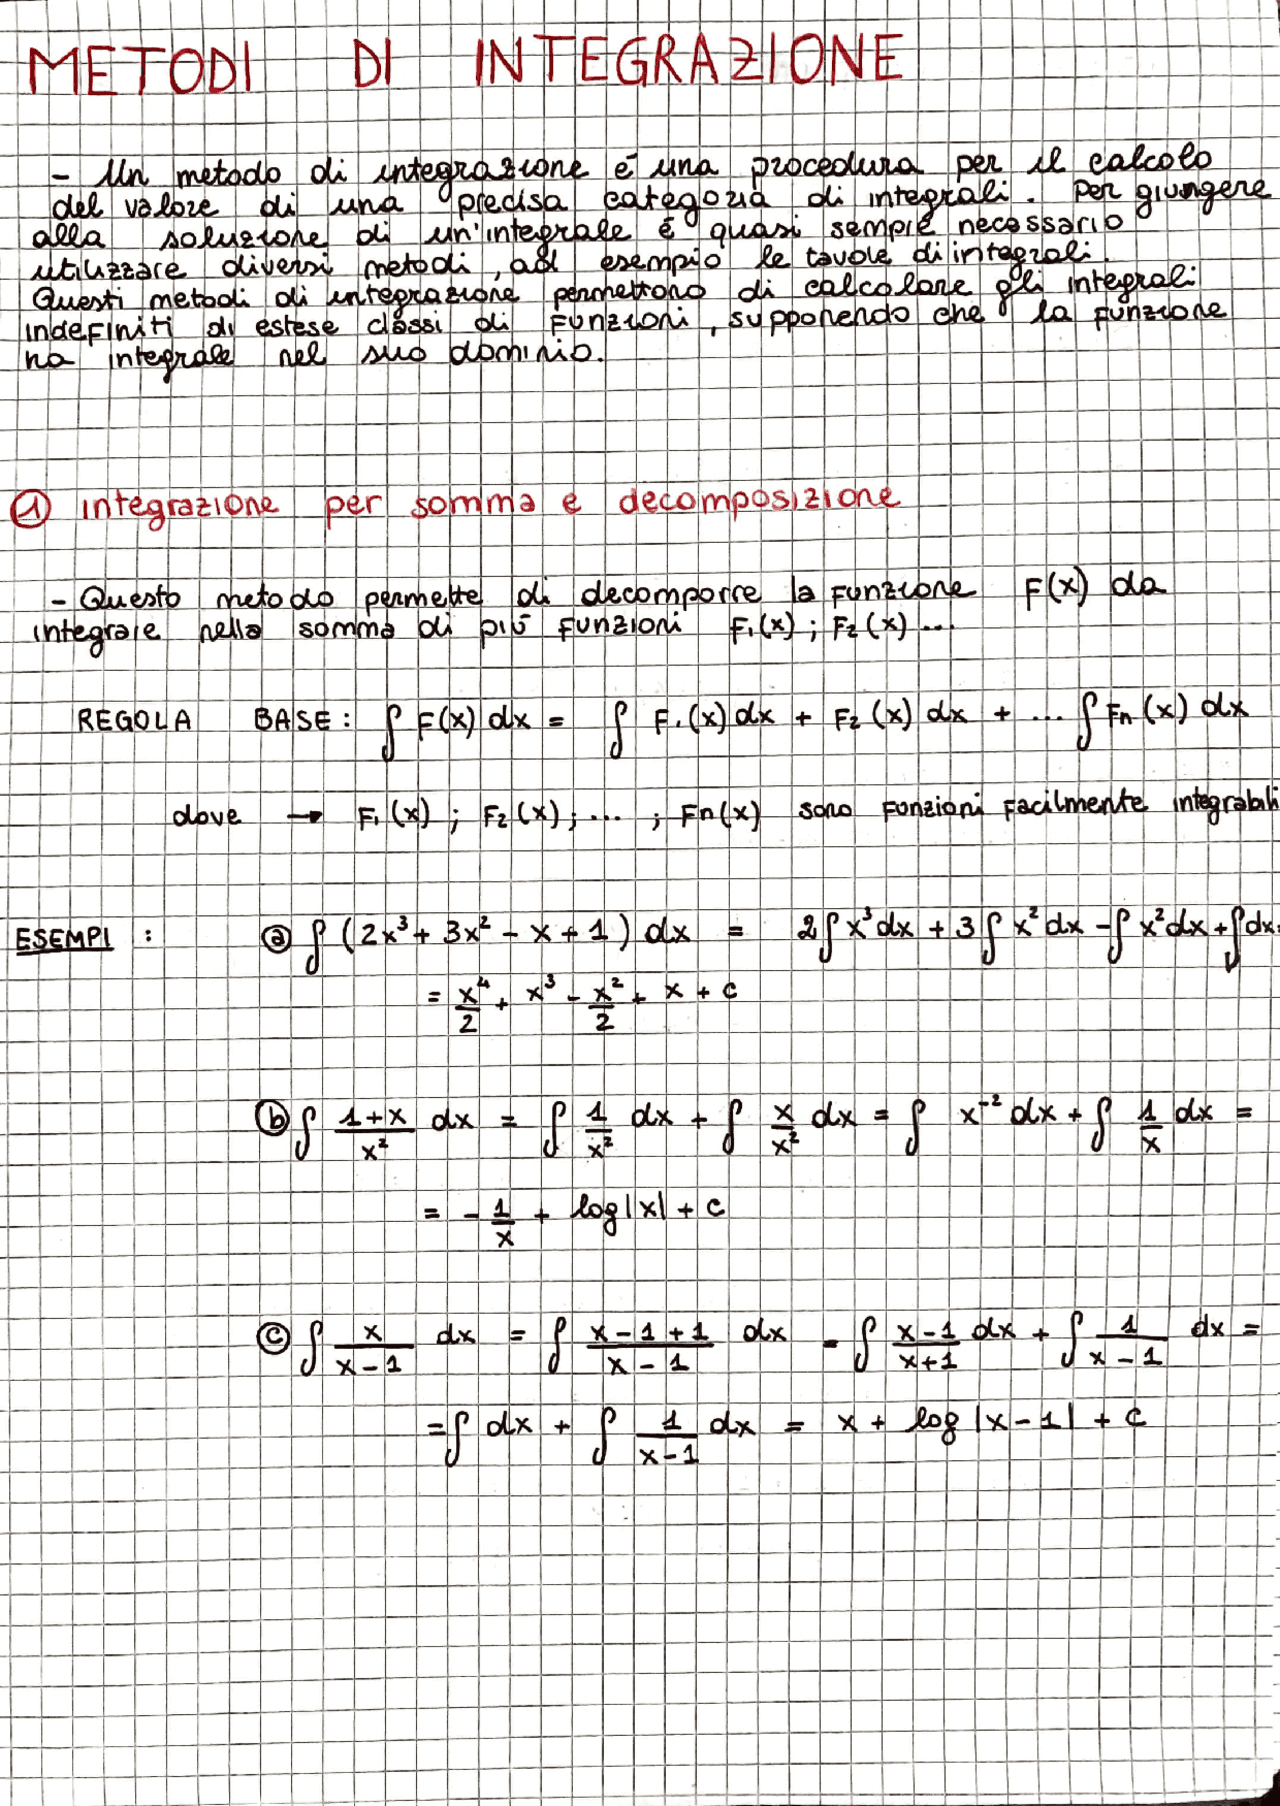 METODI DI INTEGRAZIONE
- Un metodo di integrazione è una procedura per il calcolo
del valore di una precisa categoria di integrali. Per giungere
alla soluzione di un'integrale è quasi sempre necessario
utilizzare diversi metodi, ad esempio le tavole di integrali.
Questi metodi di integrazione permettono di calcolare gli integrali
indefiniti di estese classi di funzioni, supponendo che la funzione
ha integrale nel suo dominio.
① integrazione per somma e decomposizione
- Questo metodo permette di decomporre la funzione F(x) da
integrare nella somma di più funzioni F₁(x) ; F₂(x) ...
REGOLA BASE : ∫ F(x) dx = ∫ F₁(x) dx + F₂(x) dx + ... ∫ Fn(x) dx
dove → F₁(x) ; F₂(x) ; ... ; Fn(x) sono funzioni facilmente integrabili
ESEMPI : ⓐ ∫ (2x³ + 3x² - x + 1) dx = 2∫ x³ dx + 3∫ x² dx - ∫ x² dx + ∫ dx =
= x⁴/2 + x³ - x²/2 + x + c
ⓑ ∫ (1+x)/x² dx = ∫ 1/x² dx + ∫ x/x² dx = ∫ x⁻² dx + ∫ 1/x dx =
= - 1/x + log|x| + c
ⓒ ∫ x/(x-1) dx = ∫ (x-1+1)/(x-1) dx = ∫ (x-1)/(x+1) dx + ∫ 1/(x-1) dx =
= ∫ dx + ∫ 1/(x-1) dx = x + log |x-1| + c